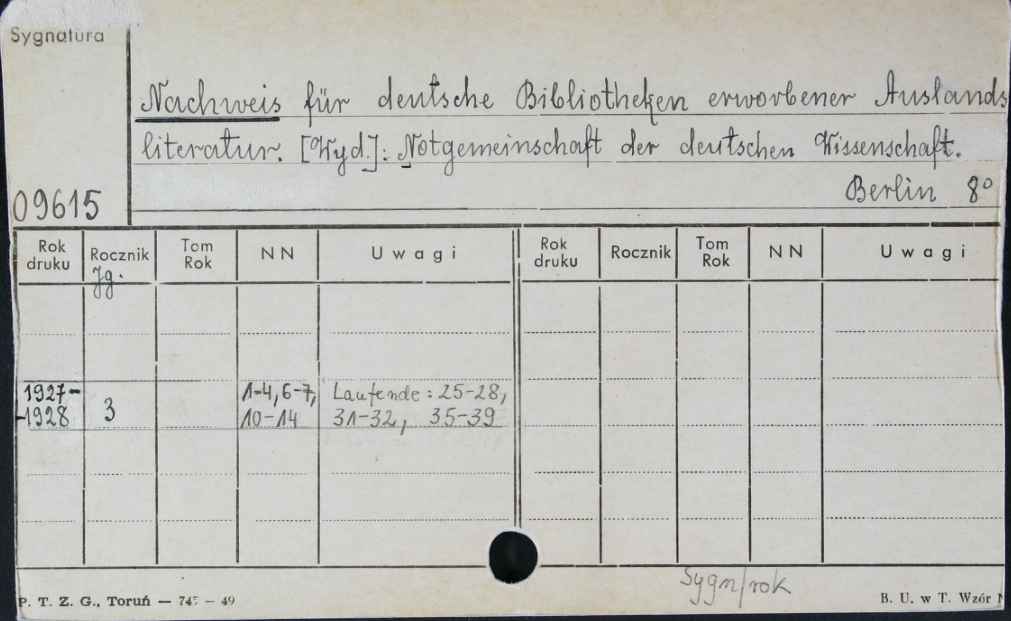 Sygnatura
Nachweis für deutsche Bibliotheken erworbener Auslands
literatur. [Wyd.]: Notgemeinschaft der deutschen Wissenschaft.
09615
Berlin 8°
Rok druku Rocznik Tom Rok NN Uwagi Rok druku Rocznik Tom Rok NN Uwagi
Jg.
1927- 1-4, 6-7, Laufende: 25-28,
-1928 3 10-14 31-32, 35-39
Sygn/rok
P. T. Z. G., Toruń — 745 — 49 B. U. w T. Wzór